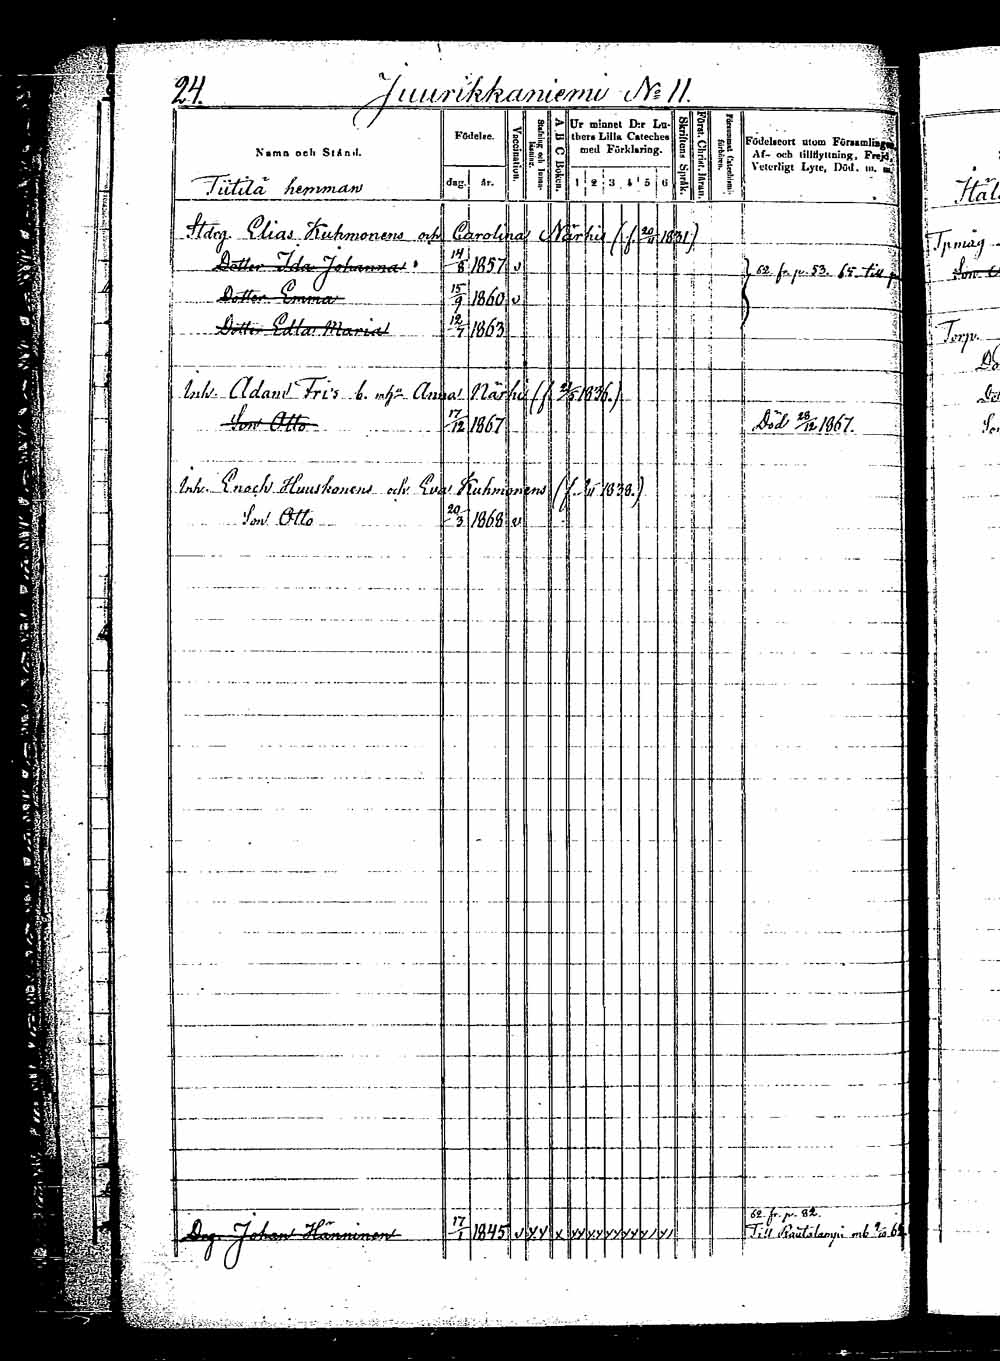 24. Juurikkaniemi No 11.
Namn och Stånd.
Födelse.
dag. år.
Vaccination.
Stafning och Innanläsning.
A B C Boken.
Ur minnet D:r Luthers Lilla Cateches med Förklaring.
1 2 3 4 5 6
Skriftens Språk.
Först. Christ. läran.
Födelseort utom Församlingen, Af- och tillflyttning, Frejd, Veterligt Lyte, Död. m. m.
Tiitilä hemman
Stdrg. Elias Kuhmonens och Carolina Närhis (f. 20/11 1831)
Dotter Ida Johanna 14/8 1857 v 62 fr. p. 53. 65. till p
Dotter Emma 15/9 1860 v
Dotter Edla Maria 12/7 1863
Inh. Adam Fri's b. m hu Anna Närhis (f. 1836.)
Son Otto 17/12 1867 Död 28/12 1867.
Inh. Enoch Huuskonens och Eva Kuhmonens (f. 1838.)
Son Otto 20/3 1868 v
Drg. Johan Hänninen 17/1 1845
62 fr. p. 82.
Till Rautalampi mb
Häl
Tpmäg
Son
Torp.
Do
Do
Son